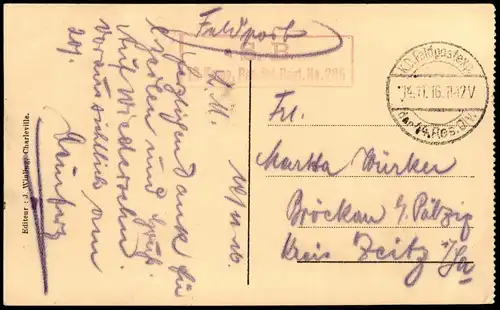 Feldpost
S. B.
Komp. Res. Inf. Regt. No.
K.D. Feldpostexp.
14.11.16.
der 14. Res. Div.
L. M.
14/11.16.
herzlichen Dank für
Karten und Gruß.
Auf Wiedersehn
voraussichtlich am
20/.
Frl.
Martha Würker
Bröckau b/ Pötzig
Kreis Zeitz i/Sa
Editeur: J. Winling, Charleville.